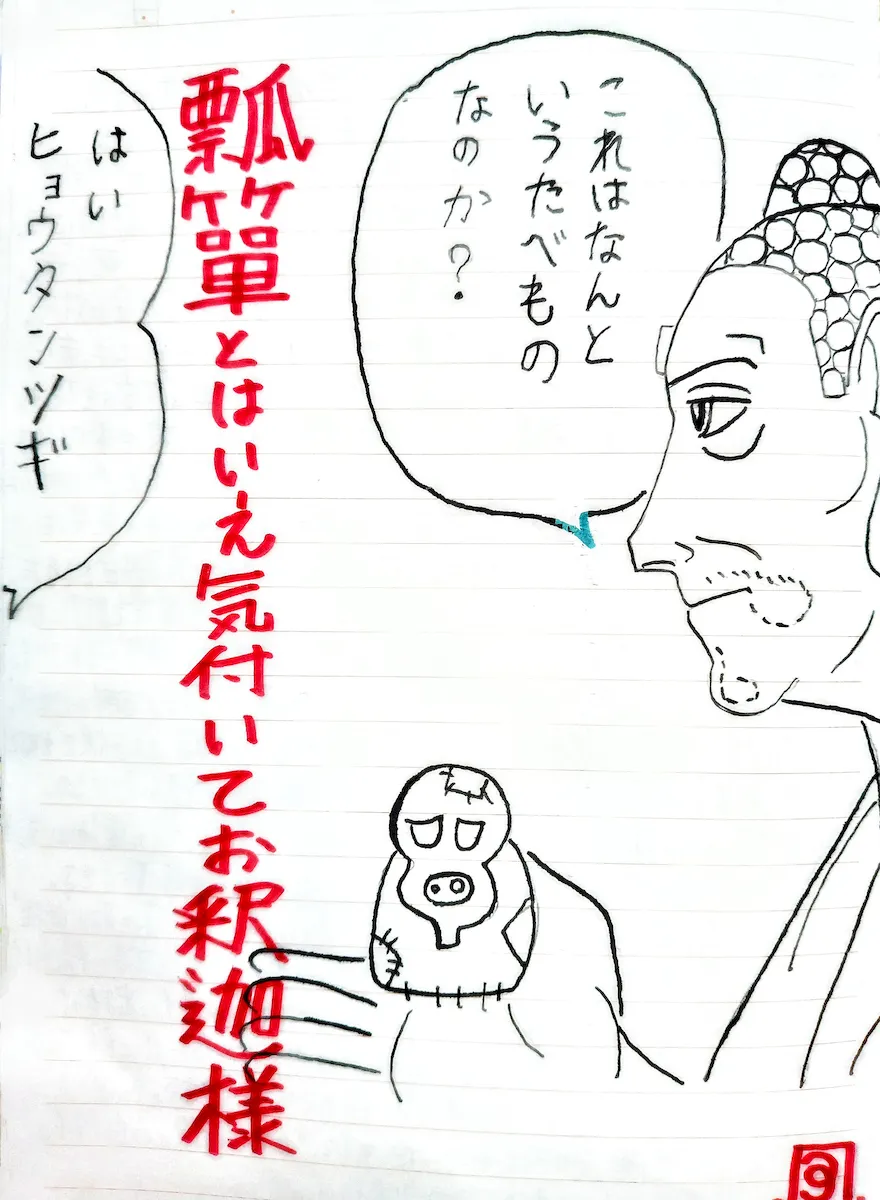 これはなんと
いうたべもの
なのか?
瓢箪とはいえ気付いてお釈迦様
はい
ヒョウタンツギ